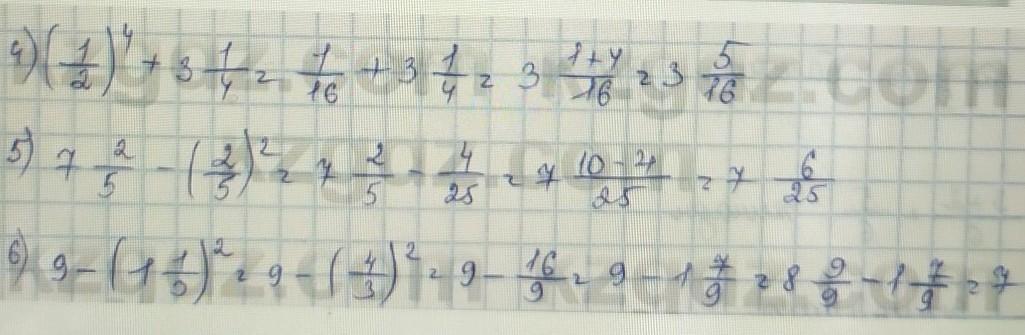 4) (1/2)^4 + 3 1/4 = 1/16 + 3 1/4 = 3 1+4/16 = 3 5/16
5) 7 2/5 - (2/5)^2 = 7 2/5 - 4/25 = 7 10-4/25 = 7 6/25
6) 9 - (1 1/3)^2 = 9 - (4/3)^2 = 9 - 16/9 = 9 - 1 7/9 = 8 9/9 - 1 7/9 = 7